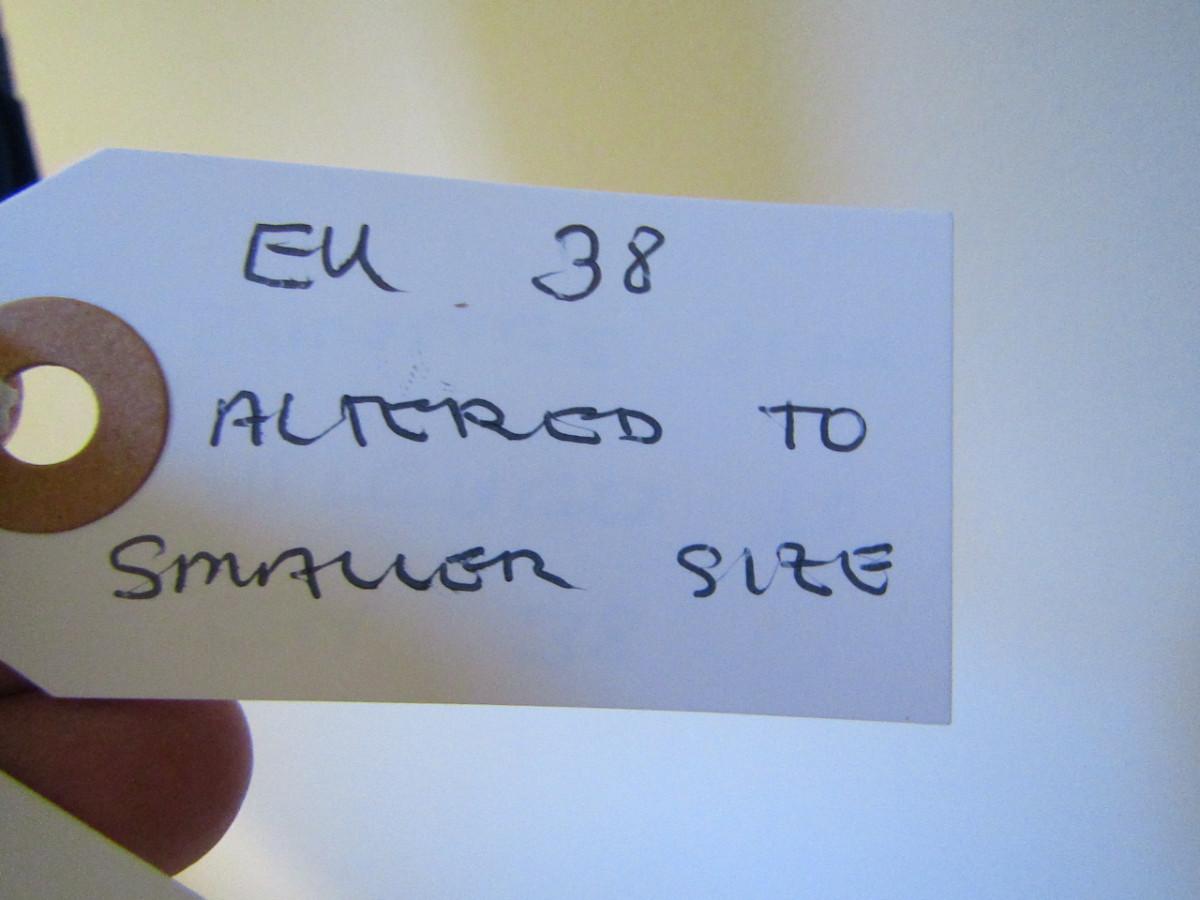 EU 38
ALTERED TO
SMALLER SIZE